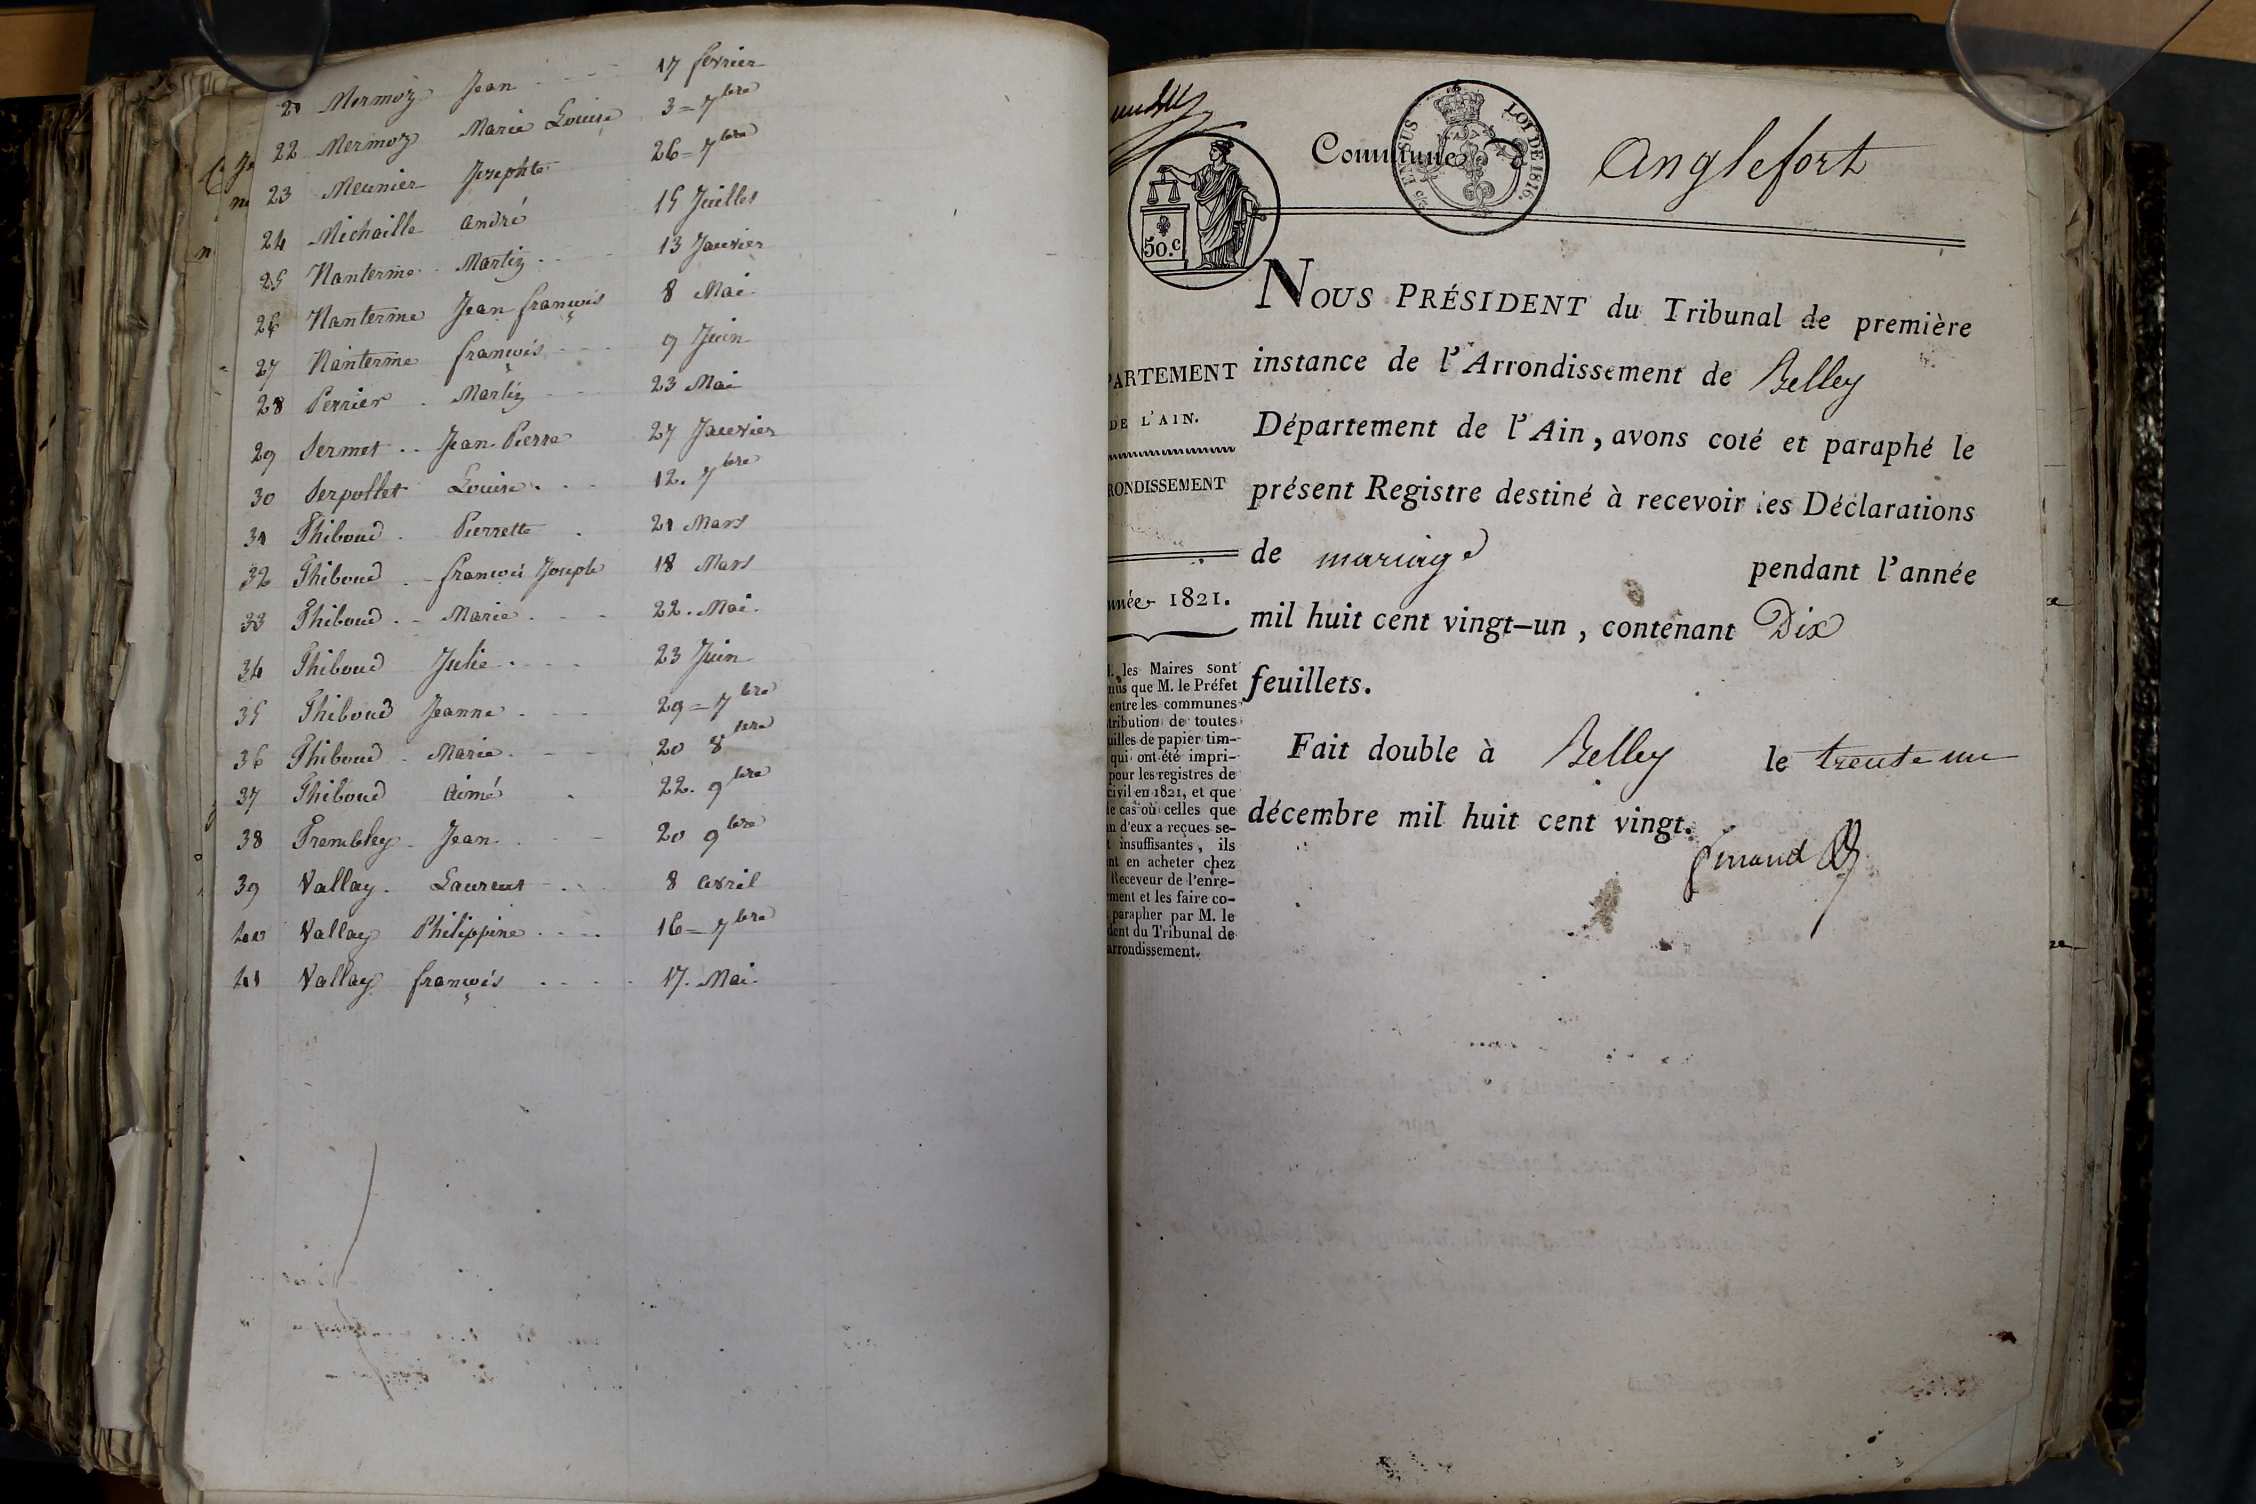 21 Mermoz Jean 17 fevrier
22 Mermoz Marie Louise 3 = 7bre
23 Meunier Josephte 26 = 7bre
24 Michaille andré 15 Juillet
25 Nanterme Martin 13 Janvier
26 Nanterme Jean françois 8 Mai
27 Nanterme françois 9 Juin
28 Perrier Martin 23 Mai
29 Sermet Jean Pierre 27 Janvier
30 Serpollet Louise 12. 7bre
31 Thiboud Pierrette 21 Mars
32 Thiboud françois Joseph 18 Mars
33 Thiboud Marie 22. Mai
34 Thiboud Julie 23 Juin
35 Thiboud Jeanne 29 = 7bre
36 Thiboud Marie 20 8bre
37 Thiboud Aimé 22. 9bre
38 Trembley Jean 20 9bre
39 Vallay Laurent 8 avril
40 Vallay Philippine 16 = 7bre
41 Vallay françois 17. Mai
EN SUS LOI DE 1816.
50.c
Commune d Anglefort
PARTEMENT
DE L'AIN.
RONDISSEMENT
nnée 1821.
les Maires sont
nus que M. le Préfet
entre les communes
tribution de toutes
uilles de papier tim-
qui ont été impri-
pour les registres de
civil en 1821, et que
le cas où celles que
n d'eux a reçues se-
t insuffisantes, ils
nt en acheter chez
Receveur de l'enre-
ment et les faire co-
parapher par M. le
dent du Tribunal de
arrondissement.
NOUS PRÉSIDENT du Tribunal de première
instance de l'Arrondissement de Belley
Département de l'Ain, avons coté et paraphé le
présent Registre destiné à recevoir les Déclarations
de mariage pendant l'année
mil huit cent vingt-un, contenant Dix
feuillets.
Fait double à Belley le trente un
décembre mil huit cent vingt.